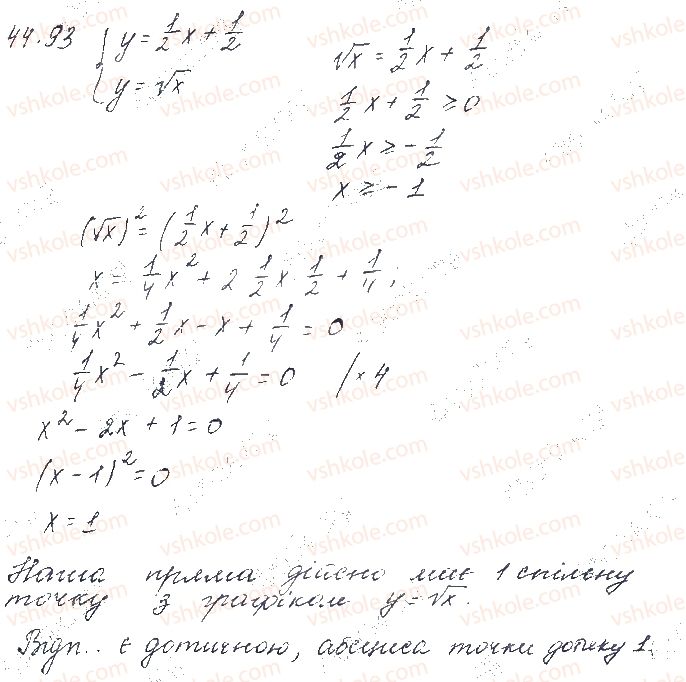 44.93 { y = 1/2 x + 1/2
y = √x
√x = 1/2 x + 1/2
1/2 x + 1/2 ≥ 0
1/2 x ≥ - 1/2
x ≥ - 1
(√x)² = (1/2 x + 1/2)²
x = 1/4 x² + 2 1/2 x · 1/2 + 1/4;
1/4 x² + 1/2 x - x + 1/4 = 0
1/4 x² - 1/2 x + 1/4 = 0 / × 4
x² - 2x + 1 = 0
(x - 1)² = 0
x = 1
Наша пряма дійсно має 1 спільну
точку з графіком y = √x.
Відп.: є дотичною, абсциса точки дотику 1.
vshkole.com